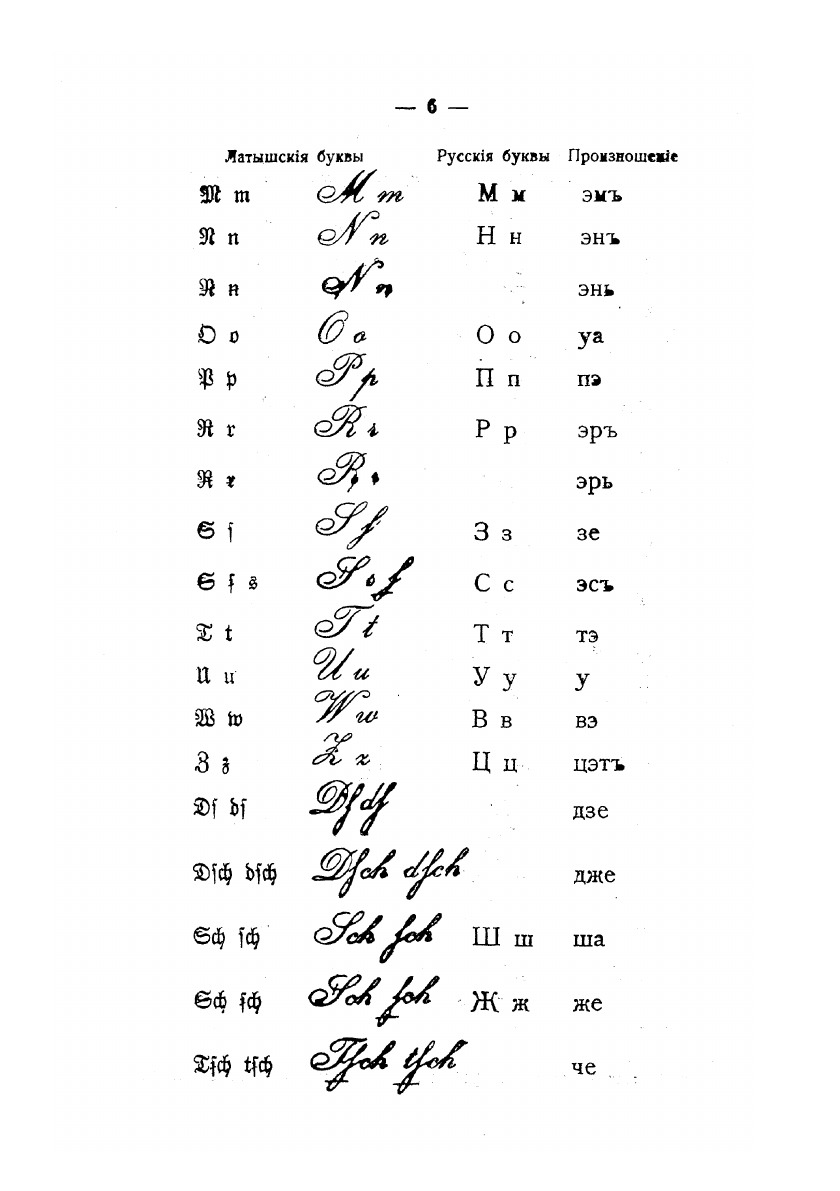 — 6 —
Латышскія буквы Русскія буквы Произношеніе
M m M m М м эмъ
N n N n Н н энъ
Ņ ņ Ņ ņ энь
O o O o О о уа
P p P p П п пэ
R r R r Р р эръ
Ŗ ŗ Ŗ ŗ эрь
S ſ S ſ З з зе
Ꞩ ꞩ s Ꞩ s ꞩ С с эсъ
T t T t Т т тэ
U u U u У у у
W w W w В в вэ
Z z Z z Ц ц цэтъ
Dſ dſ Dſ dſ дзе
Dſch dſch Dſch dſch дже
Sch ſch Sch ſch Ш ш ша
Ꞩch ꞩch Ꞩch ꞩch Ж ж же
Tꞩch tꞩch Tꞩch tꞩch че